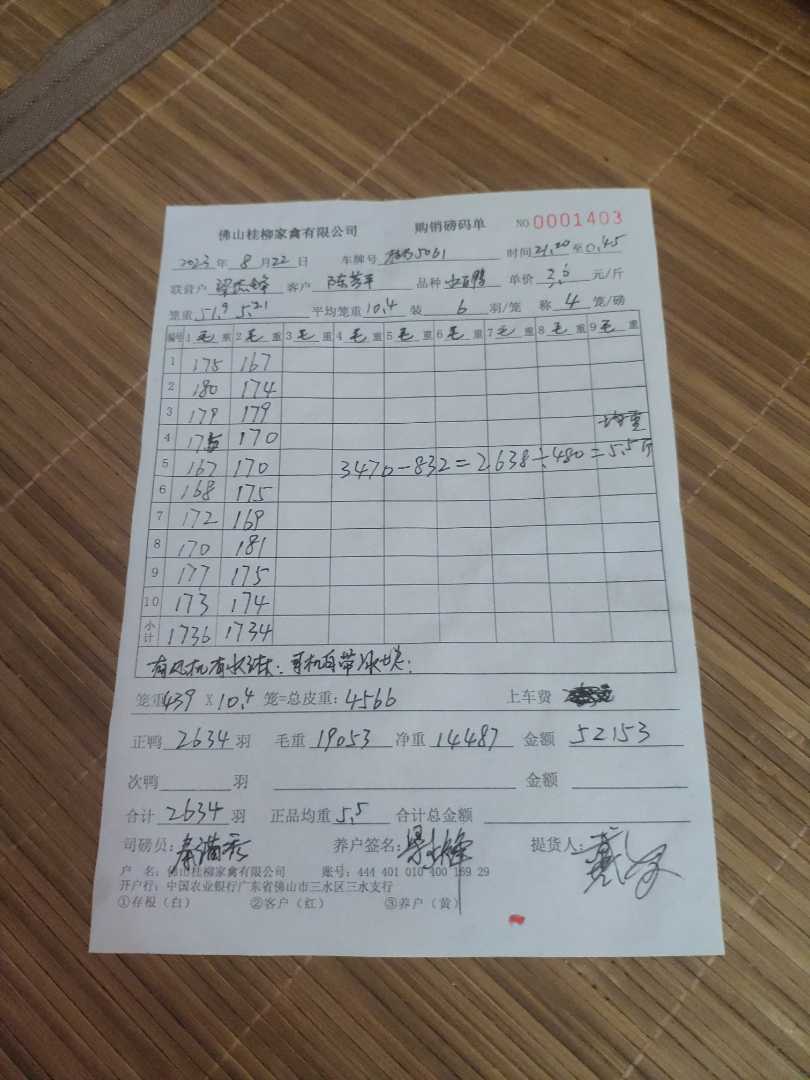 佛山桂柳家禽有限公司 购销磅码单 NO 0001403
2023 年 8 月 22 日 车牌号 5061 时间 21.20 至 0.45
联营户 梁杰锋 客户 陈芳平 品种 鸭 单价 3.6 元/斤
笼重 51.9 5.21 平均笼重 10.4 装 6 羽/笼 称 4 笼/磅
编号 1 毛 重 2 毛 重 3 毛 重 4 毛 重 5 毛 重 6 毛 重 7 毛 重 8 毛 重 9 毛 重
1 175 167
2 180 174
3 179 179
4 175 170 均重
5 167 170 3470-832=2638÷480=5.5斤
6 168 175
7 172 169
8 170 181
9 177 175
10 173 174
小计 1736 1734
有风机有水 司机自带冰块
笼重 439 X 10.4 笼=总皮重: 4566 上车费
正鸭 2634 羽 毛重 19053 净重 14487 金额 52153
次鸭 羽 金额
合计 2634 羽 正品均重 5.5 合计总金额
司磅员: 秦满秀 养户签名: 梁杰锋 提货人:
户 名: 佛山桂柳家禽有限公司 账号: 444 401 010 400 169 29
开户行: 中国农业银行广东省佛山市三水区三水支行
①存根（白） ②客户（红） ③养户（黄）